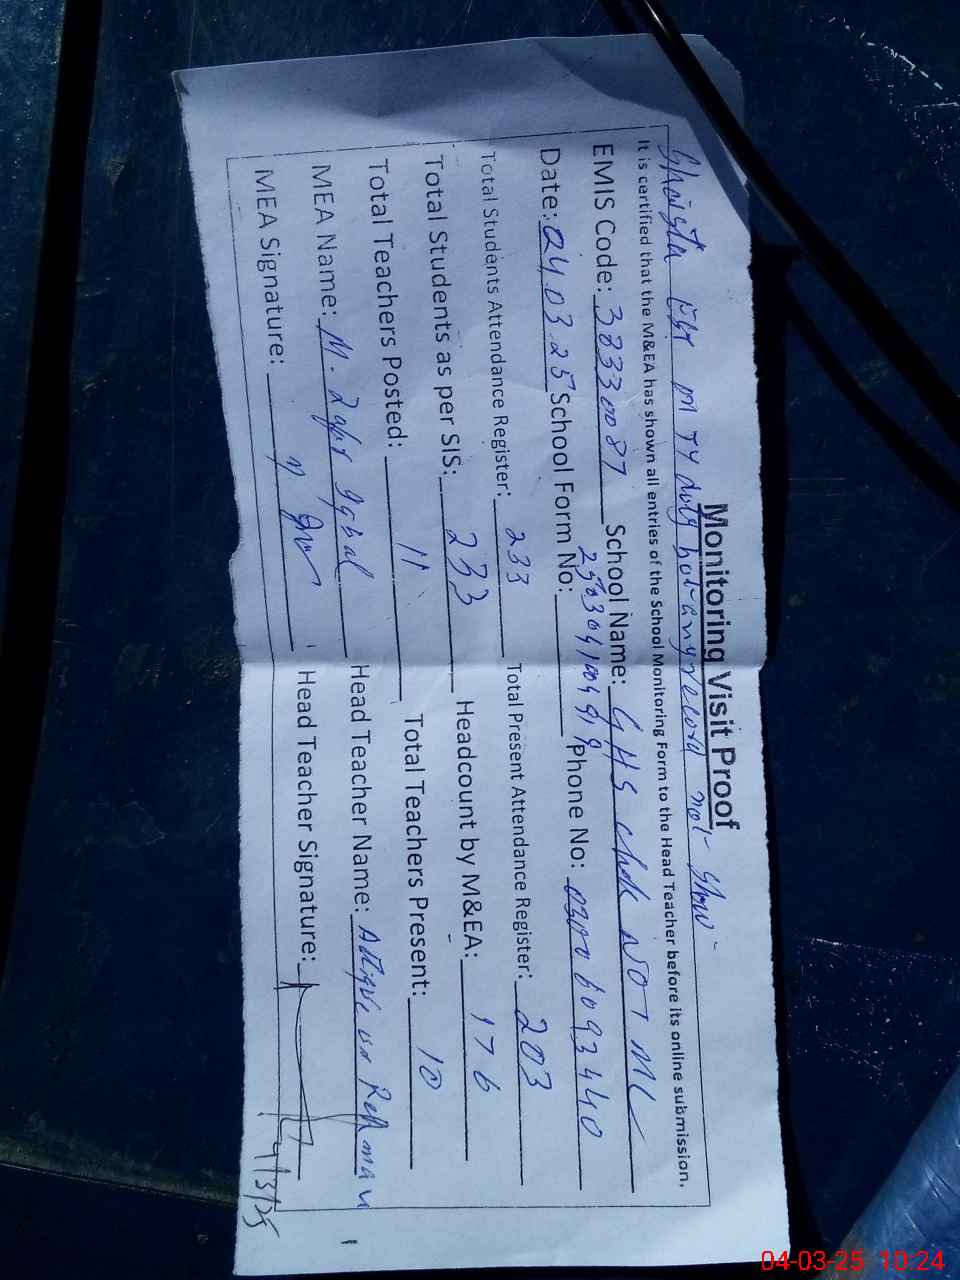 Monitoring Visit Proof
Shaista EST m TY duty but any record not show
It is certified that the M&EA has shown all entries of the School Monitoring Form to the Head Teacher before its online submission,
EMIS Code: 38330087 School Name: GHS chak NO 7 ML
Date: 04.03.25 School Form No: Phone No: 03006093440
Total Students Attendance Register: 233 Total Present Attendance Register: 203
Total Students as per SIS: 233 Headcount by M&EA: 176
Total Teachers Posted: 11 Total Teachers Present: 10
MEA Name: M. Zafar Iqbal Head Teacher Name: Attique ur Rehman
MEA Signature: Head Teacher Signature:
4/3/25
04-03-25 10:24